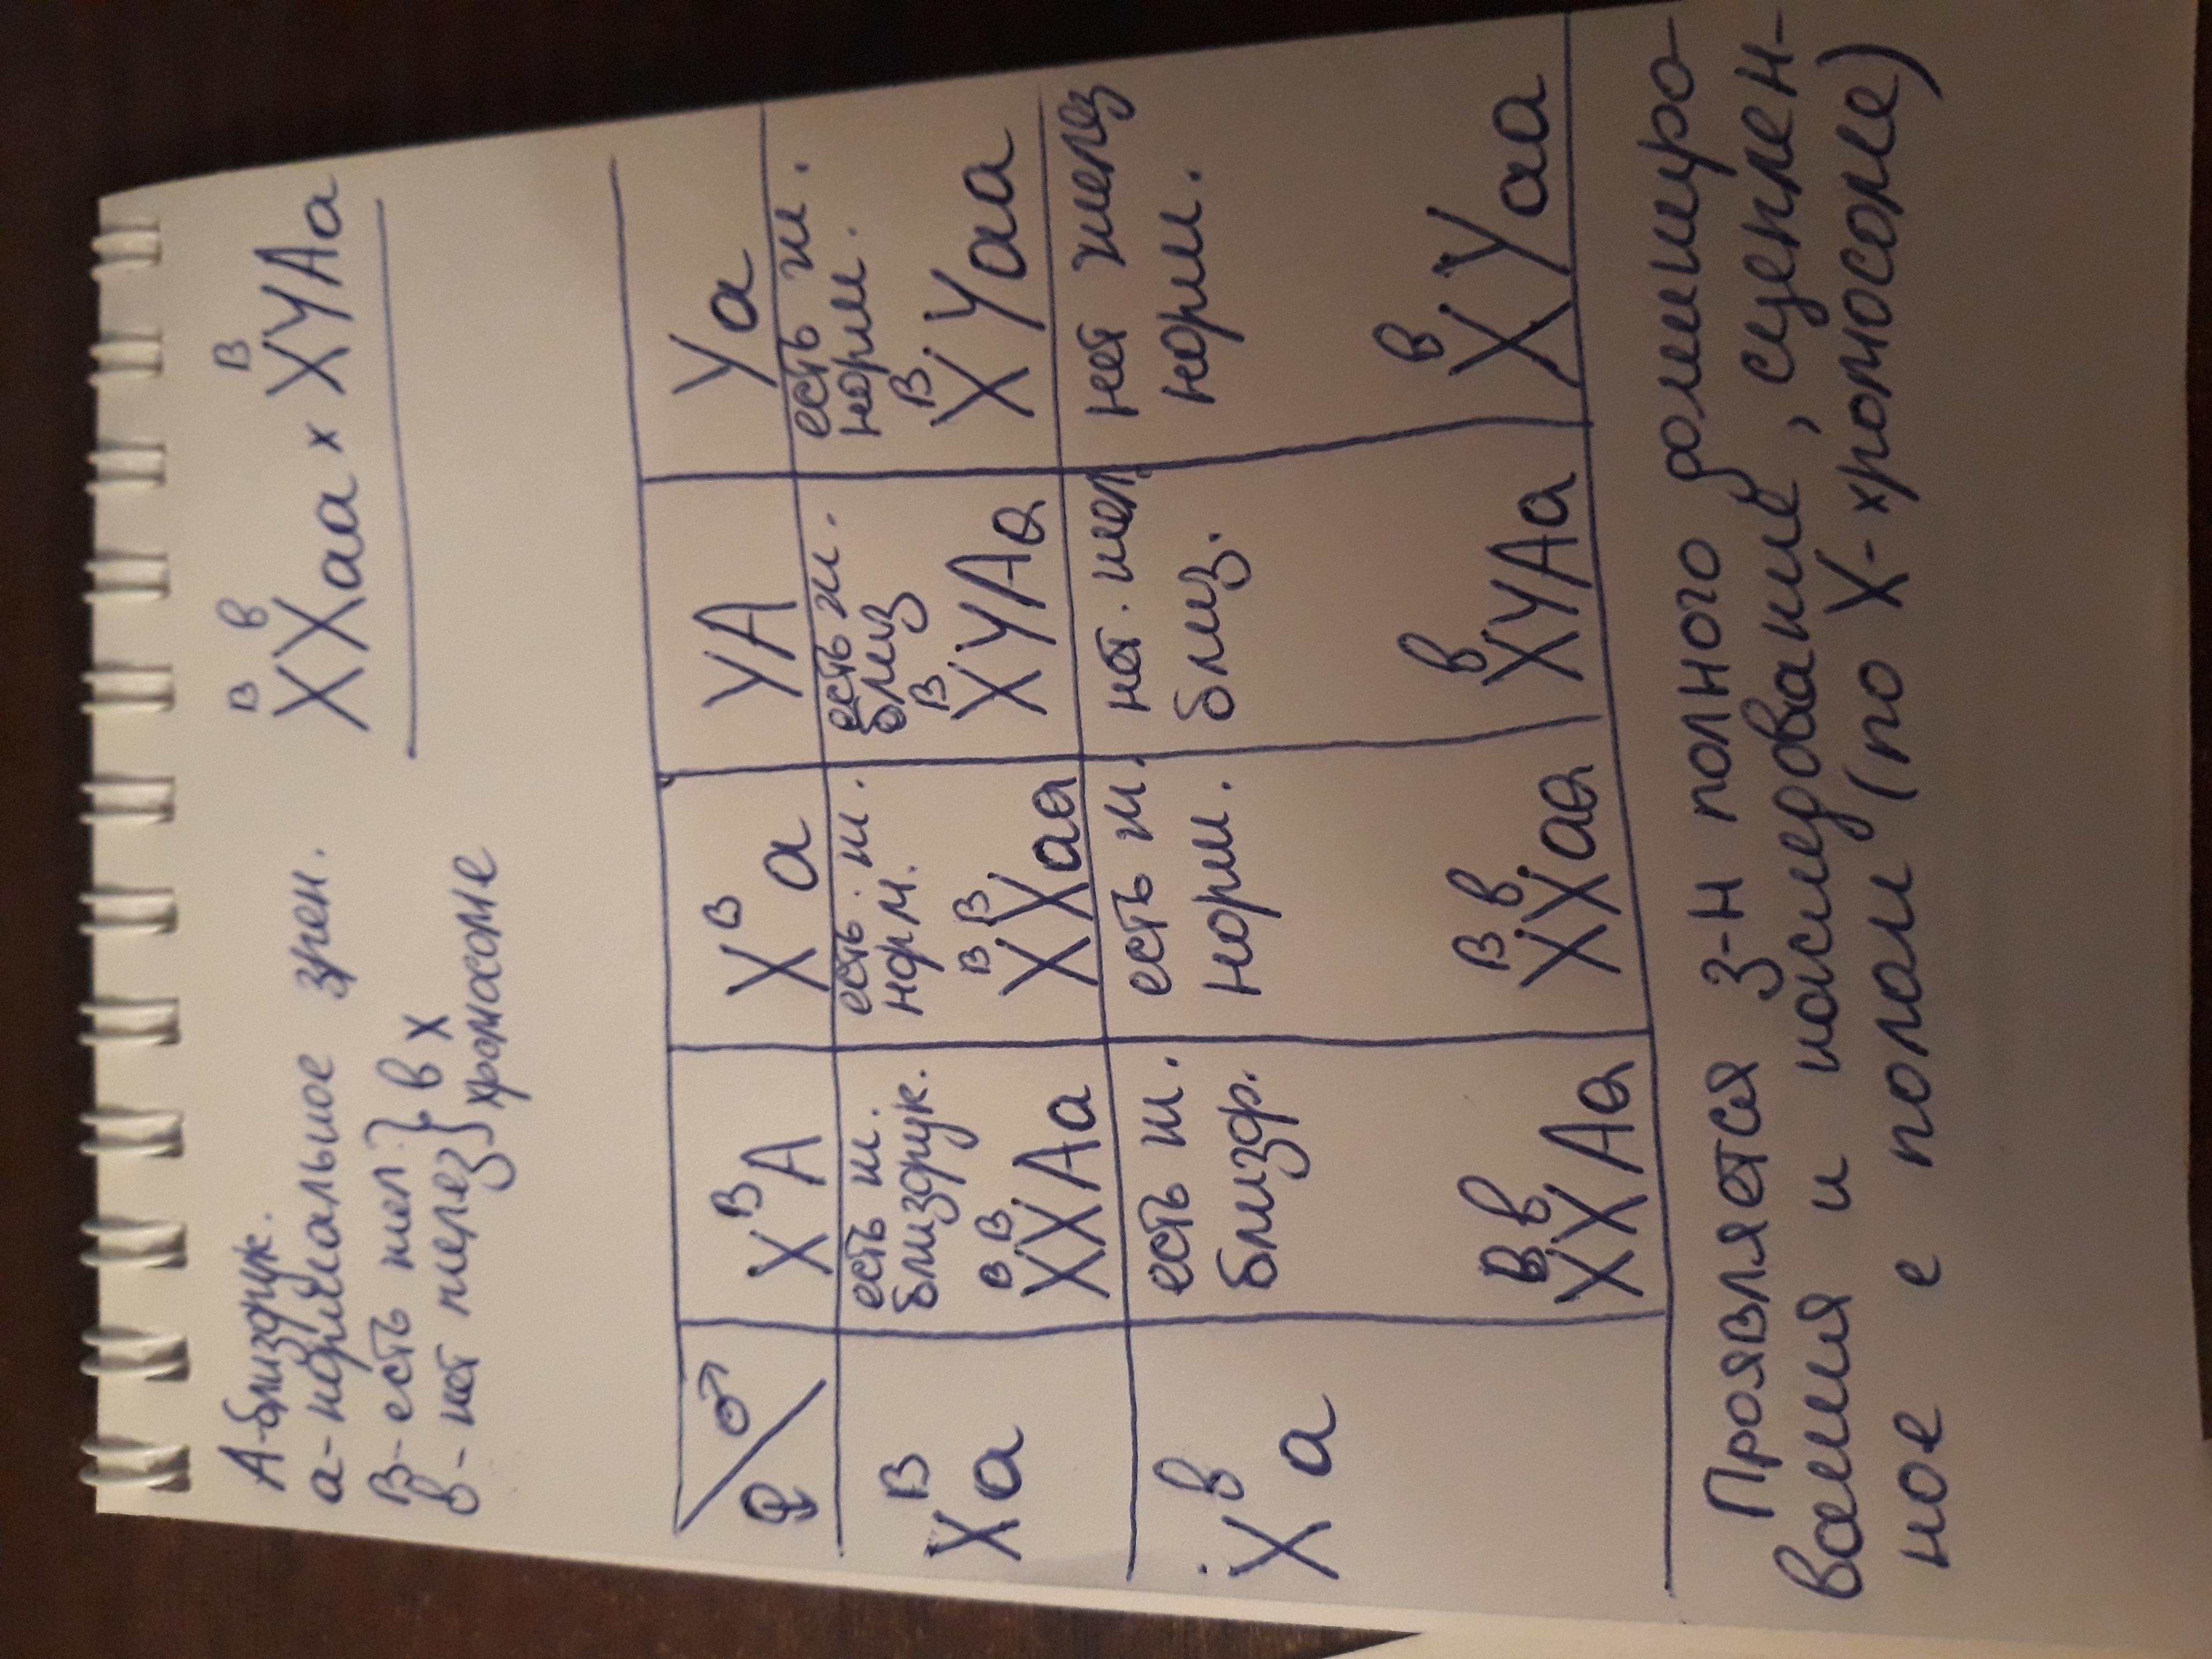 А-близорук.
а-нормальное зрен.
В-есть жел. } в х
в-нет желез } хромосоме
X^B X^в aa x X^B Y Aa
♀ / ♂
X^B A
X^B a
Y A
Y a
X^B a
есть ж.
близорук.
X^B X^B Aa
есть ж.
норм.
X^B X^B aa
есть ж.
близ
X^B Y Aa
есть ж.
норм.
X^B Y aa
X^в a
есть ж.
близор.
X^B X^в Aa
есть ж.
норм.
X^B X^в aa
нет. жел
близ.
X^в Y Aa
нет желез
норм.
X^в Y aa
Проявляется з-н полного доминиро-
вания и наследование, сцеплен-
ное с полом (по X-хромосоме)